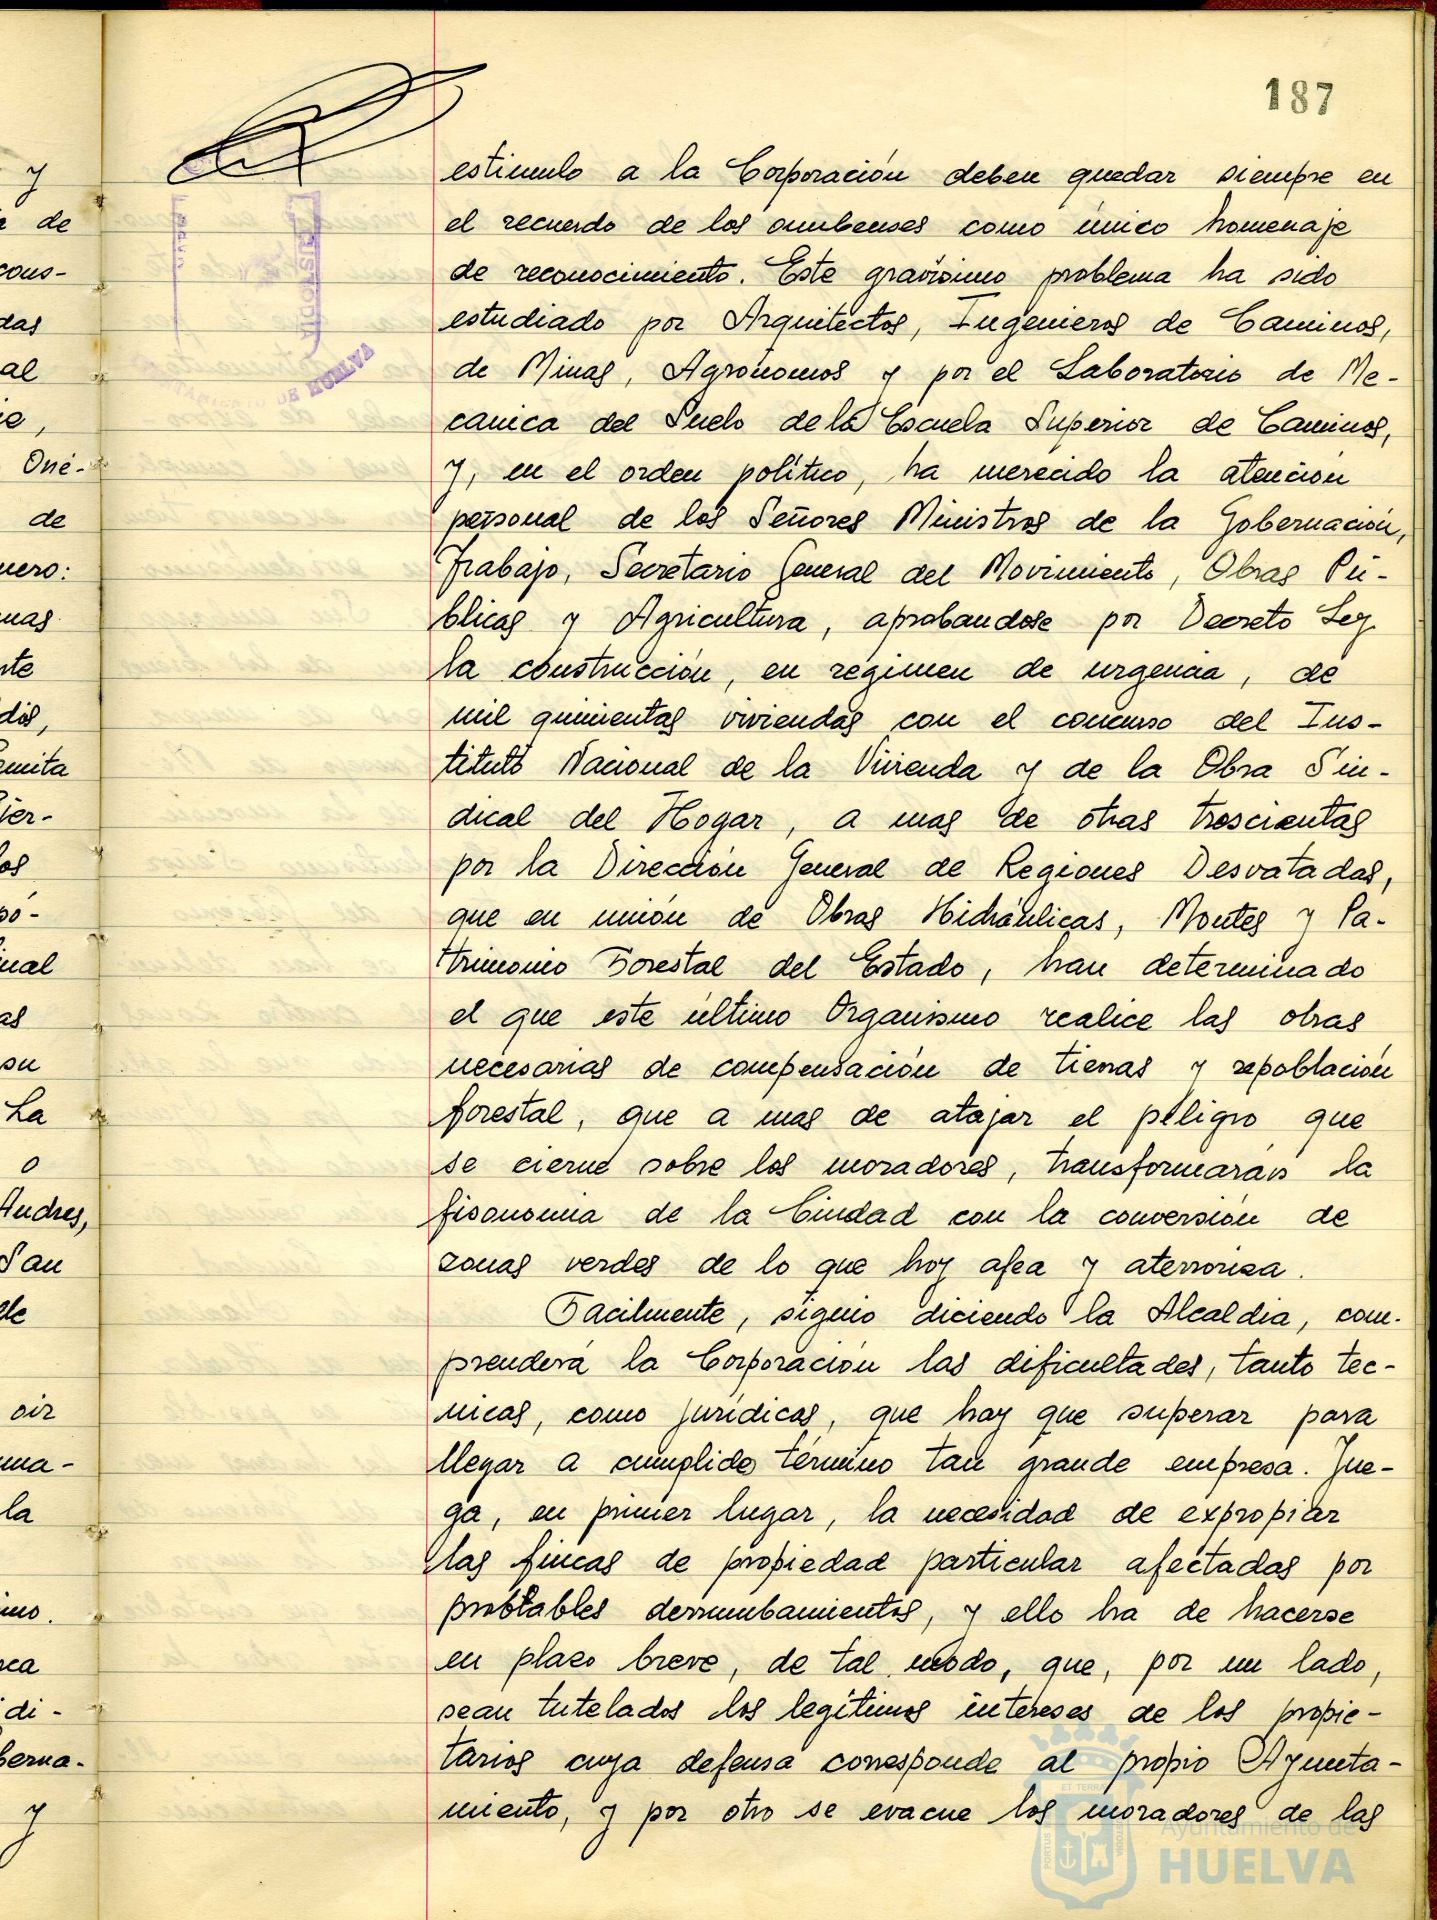 187
estimulo a la Corporación deben quedar siempre en
el recuerdo de los onubenses como único homenaje
de reconocimiento. Este gravisimo problema ha sido
estudiado por Arquitectos, Ingenieros de Caminos,
de Minas, Agronomos y por el Laboratorio de Me-
canica del Suelo de la Escuela Superior de Caminos,
y, en el orden político, ha merecido la atención
personal de los Señores Ministros de la Gobernación,
Trabajo, Secretario General del Movimiento, Obras Pú-
blicas y Agricultura, aprobandose por Decreto Ley
la construcción, en regimen de urgencia, de
mil quinientas viviendas con el concurso del Ins-
tituto Nacional de la Vivienda y de la Obra Sin-
dical del Hogar, a mas de otras trescientas
por la Dirección General de Regiones Desvatadas,
que en unión de Obras Hidráulicas, Montes y Pa-
trimonio Forestal del Estado, han determinado
el que este último Organismo realice las obras
necesarias de compensación de tierras y repoblación
forestal, que a mas de atajar el peligro que
se cierne sobre los moradores, transformarán la
fisonomia de la Ciudad con la conversión de
zonas verdes de lo que hoy afea y aterroriza.
Facilmente, siguio diciendo la Alcaldia, com-
prenderá la Corporación las dificultades, tanto tec-
nicas, como jurídicas, que hay que superar para
llegar a cumplido término tan grande empresa. Jue-
ga, en primer lugar, la necesidad de expropiar
las fincas de propiedad particular afectadas por
derrumbamientos, y ello ha de hacerse
en plazo breve, de tal modo, que, por un lado,
sean tutelados los legítimos intereses de los propie-
tarios cuya defensa corresponde al propio Ayunta-
miento, y por otro se evacue los moradores de las
y
de
cons-
das
al
Oné-
de
uero:
nas
nte
mita
los
nal
as
su
La
o
Andres,
San
oir
ma-
la
di-
berna-
y
DE HUELVA
Ayuntamiento de
HUELVA